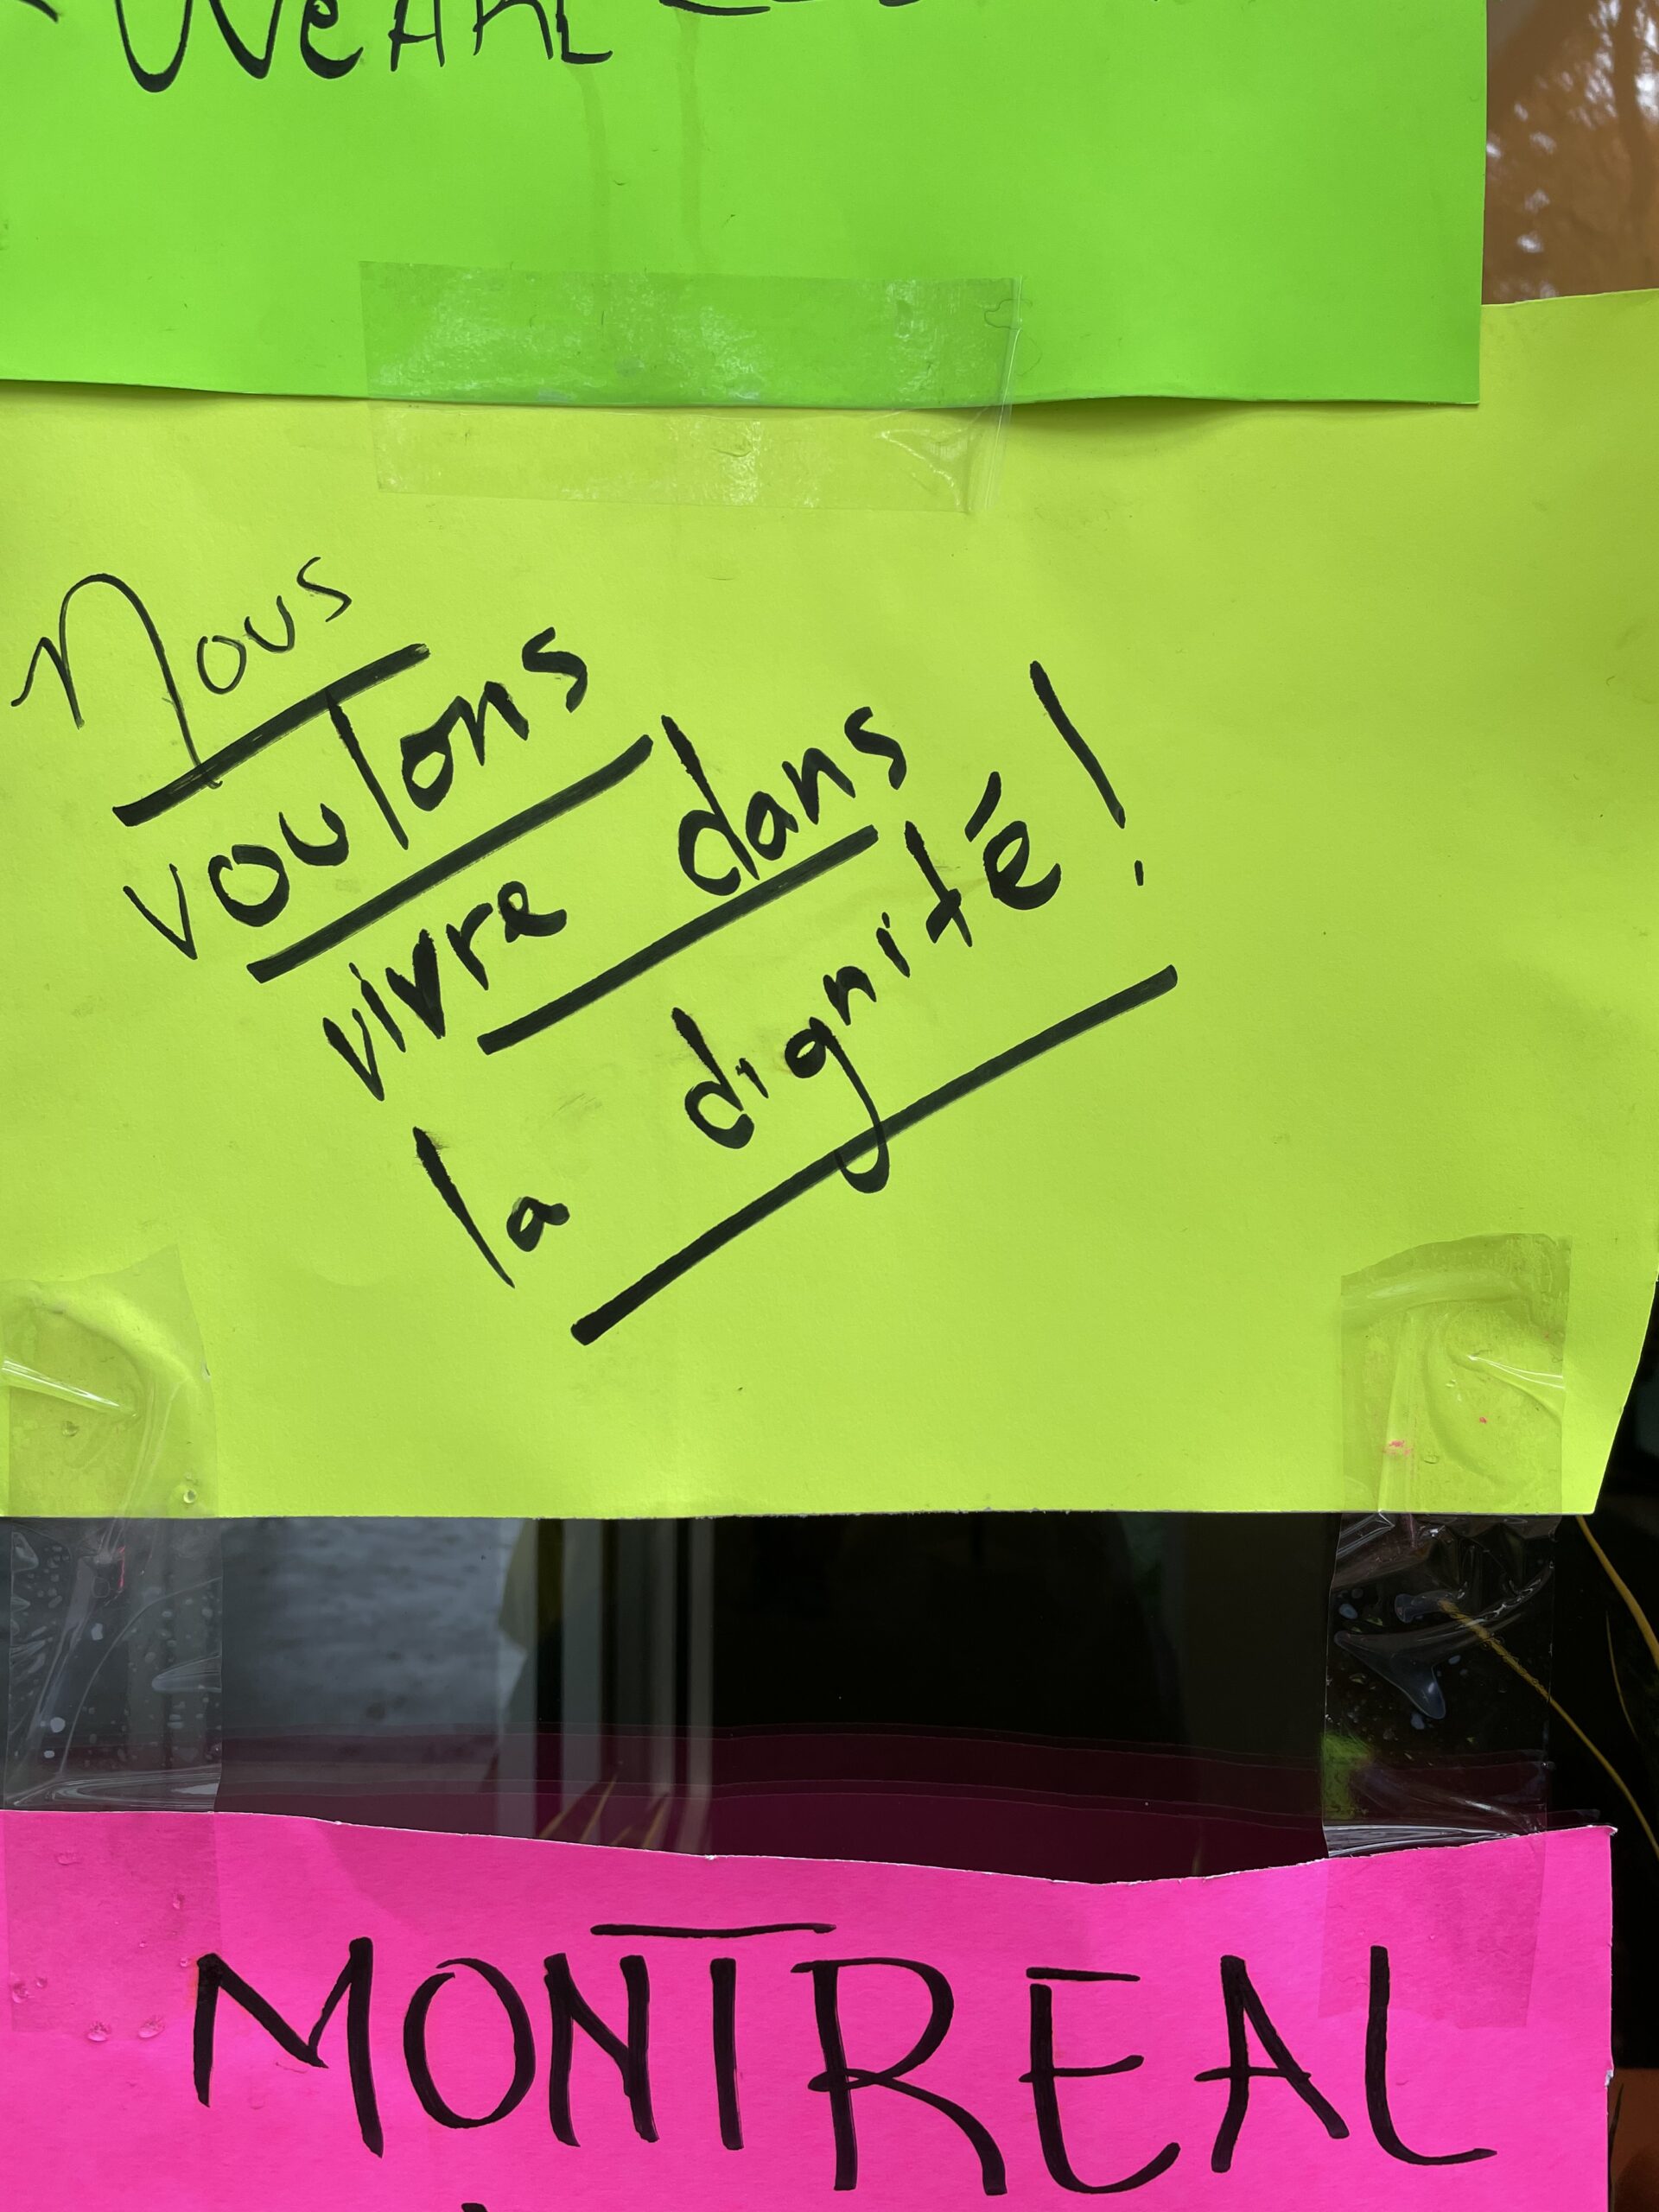 We ARE
Nous
voulons
vivre dans
la dignité!
MONTREAL